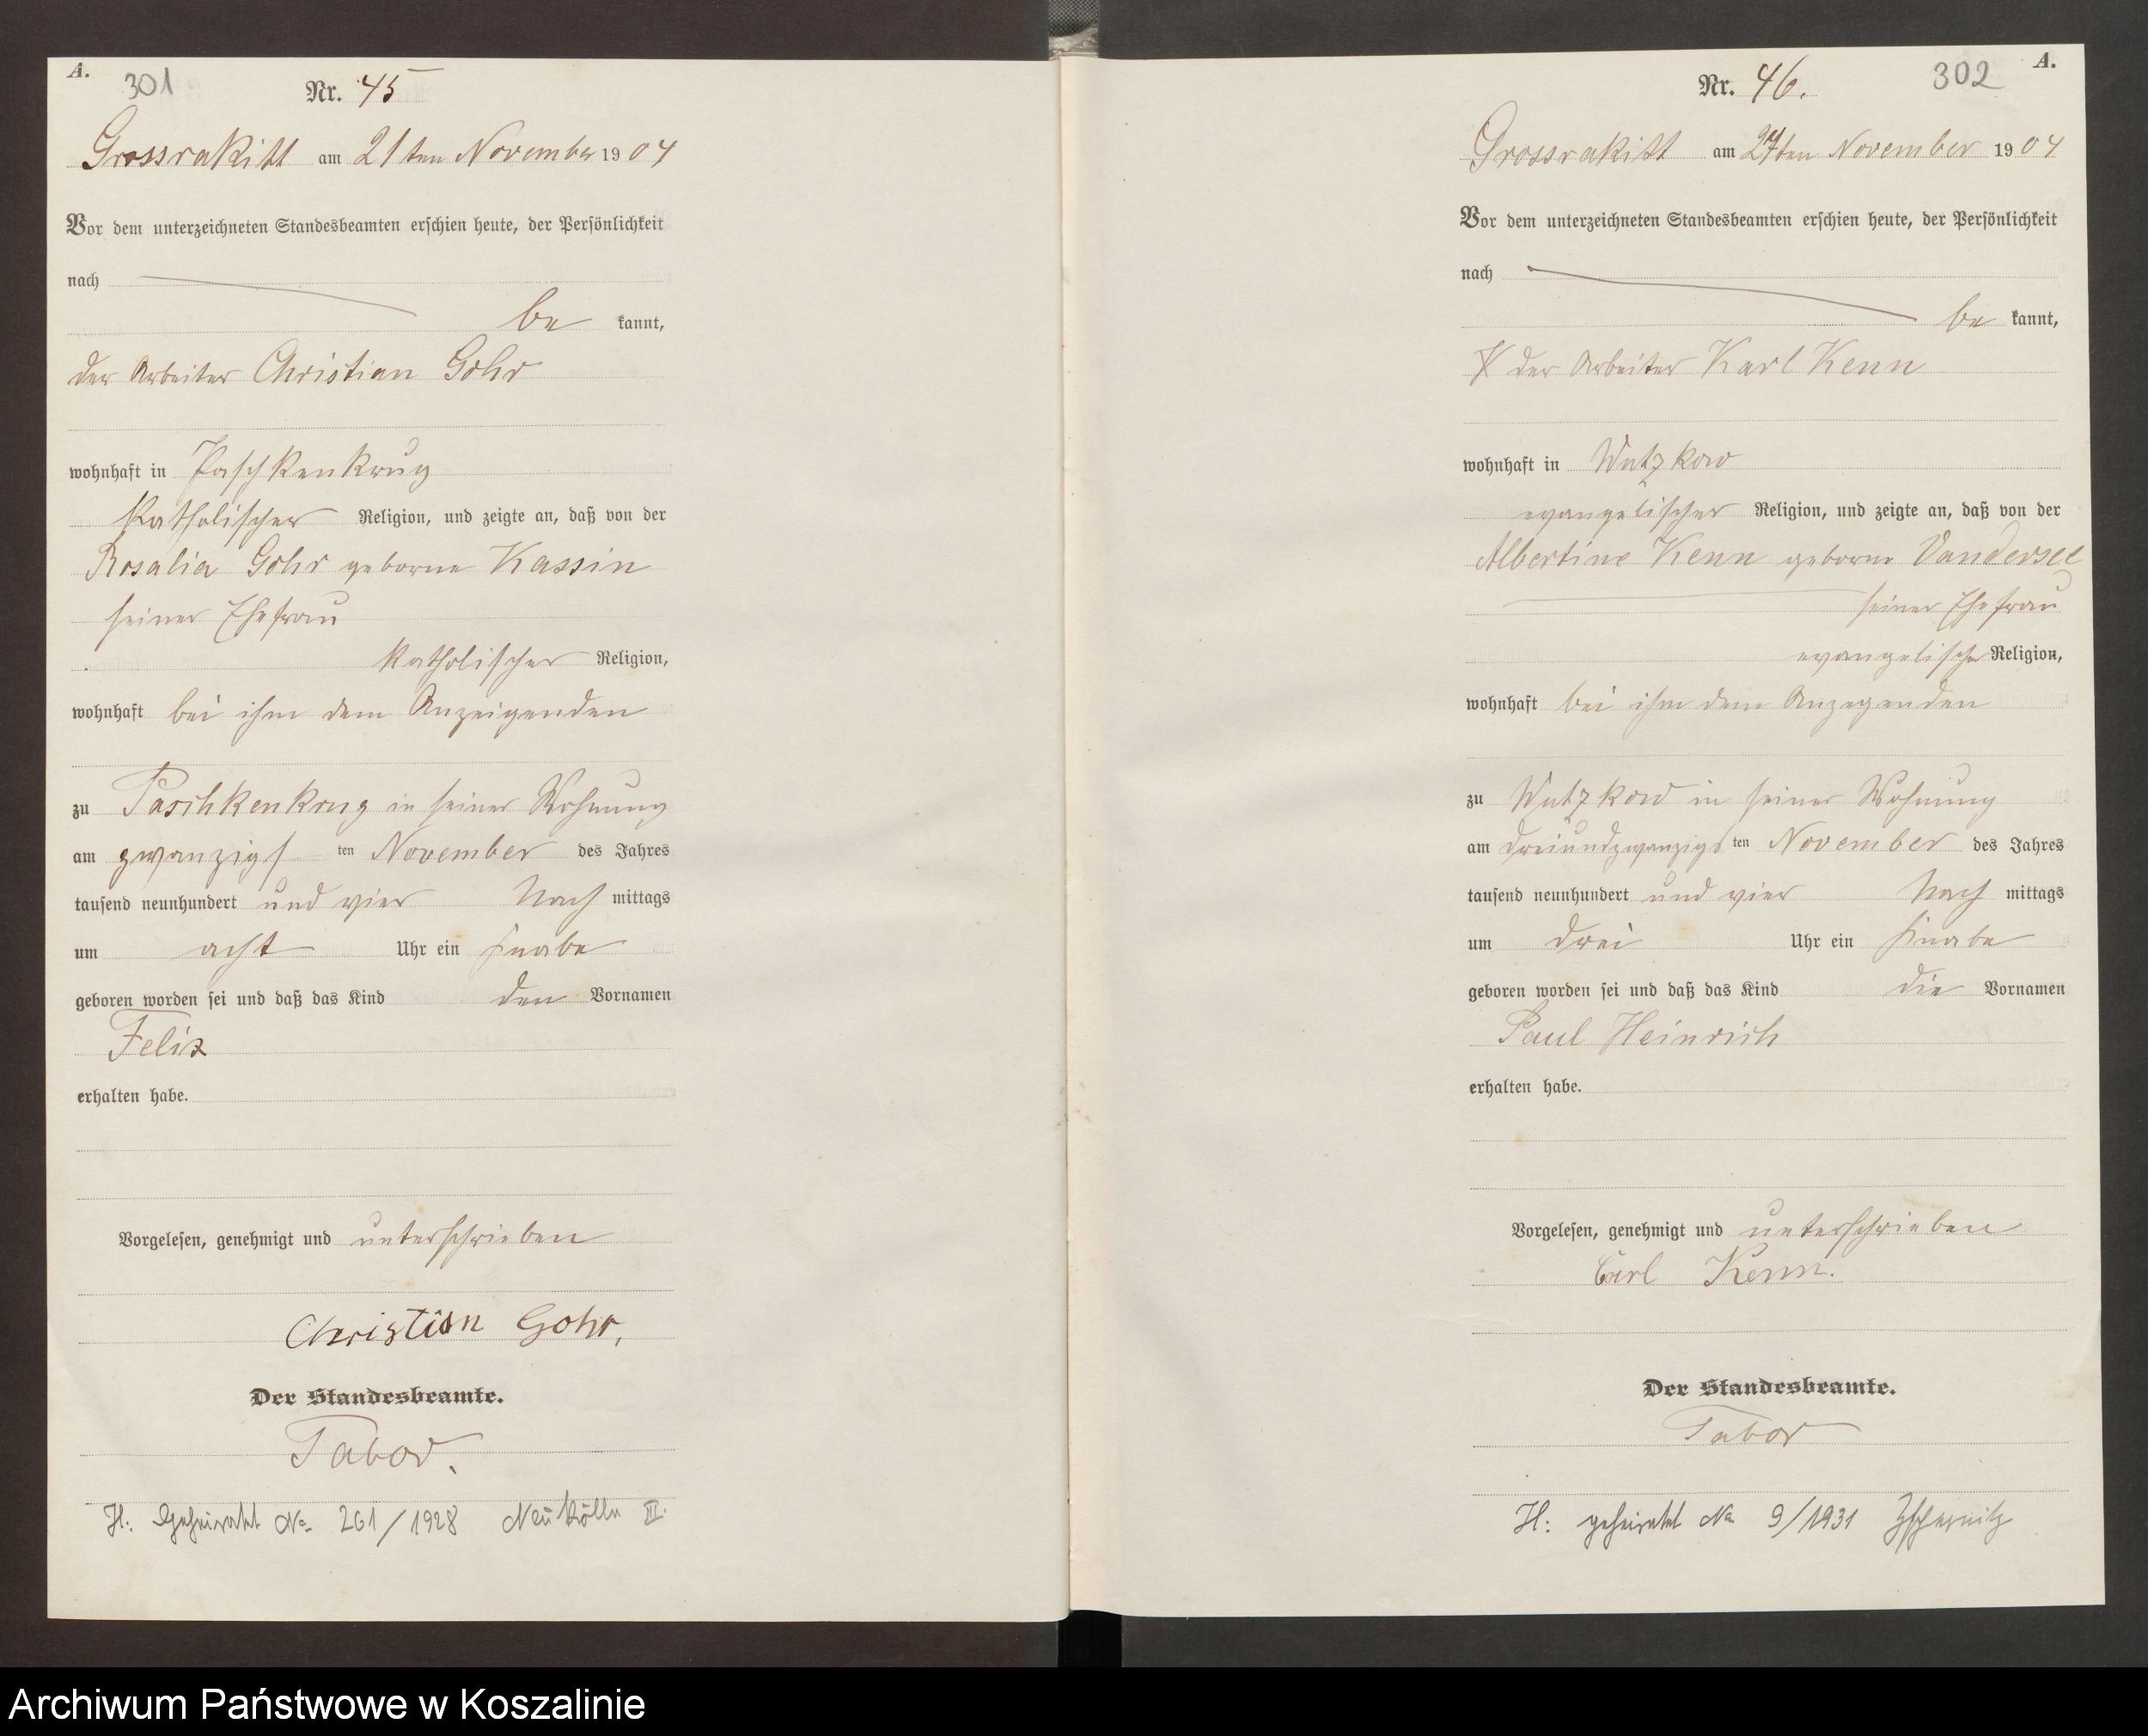 A.
301
Nr. 45
Grossrakitt am 21ten November 1904
Vor dem unterzeichneten Standesbeamten erschien heute, der Persönlichkeit
nach
be kannt,
der Arbeiter Christian Gohr
wohnhaft in Paschkenkrug
katholischer Religion, und zeigte an, daß von der
Rosalia Gohr geborne Kassin
seiner Ehefrau
katholischer Religion,
wohnhaft bei ihm dem Anzeigenden
zu Paschkenkrug in seiner Wohnung
am zwanzigsten November des Jahres
tausend neunhundert und vier Nach mittags
um acht Uhr ein Knabe
geboren worden sei und daß das Kind den Vornamen
Felix
erhalten habe.
Vorgelesen, genehmigt und unterschrieben
Christian Gohr,
Der Standesbeamte.
Tabor.
H: Geheiratet No 261/1928 Neukölln II.
Nr. 46.
302
A.
Grossrakitt am ten November 1904
Vor dem unterzeichneten Standesbeamten erschien heute, der Persönlichkeit
nach
be kannt,
der Arbeiter Karl Kenn
wohnhaft in Wutzkow
evangelischer Religion, und zeigte an, daß von der
Albertine Kenn geborne Vandersee
seiner Ehefrau
evangelischer Religion,
wohnhaft bei ihm dem Anzegenden
zu Wutzkow in seiner Wohnung
am dreiundzwanzigsten November des Jahres
tausend neunhundert und vier Nach mittags
um drei Uhr ein Knabe
geboren worden sei und daß das Kind die Vornamen
Paul Heinrich
erhalten habe.
Vorgelesen, genehmigt und unterschrieben
Carl Kenn.
Der Standesbeamte.
Tabor
H: geheiratet No 9/1931
Archiwum Państwowe w Koszalinie